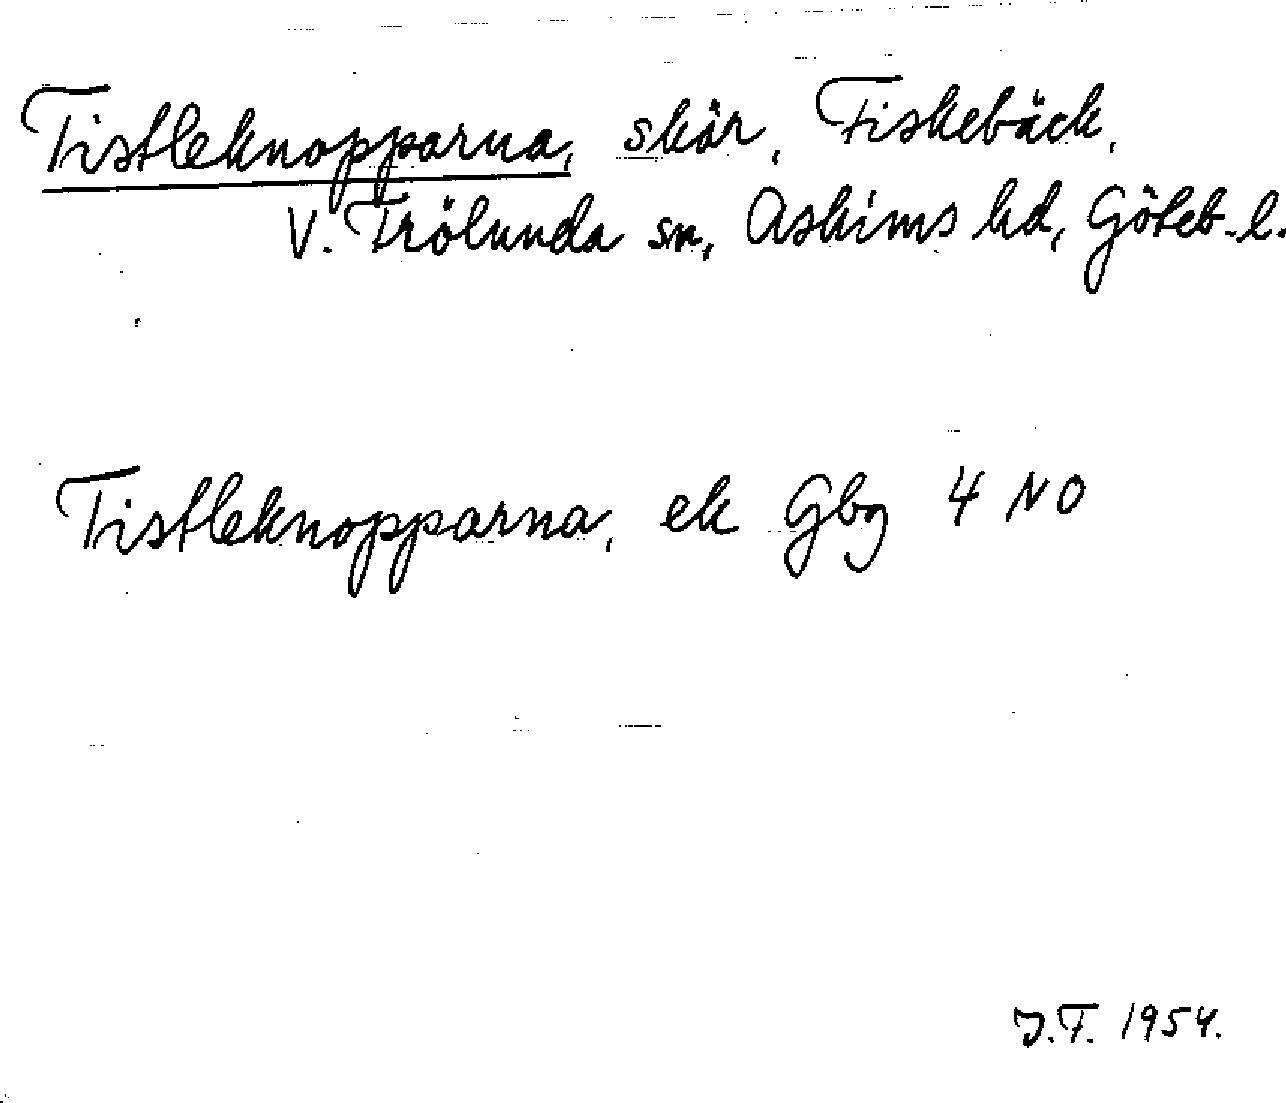 Tistleknopparna, skär, Fiskebäck,
V. Frölunda sn, Askims hd, Göteb. l.
Tistleknopparna, ek Gbg 4 NO
J.F. 1954.